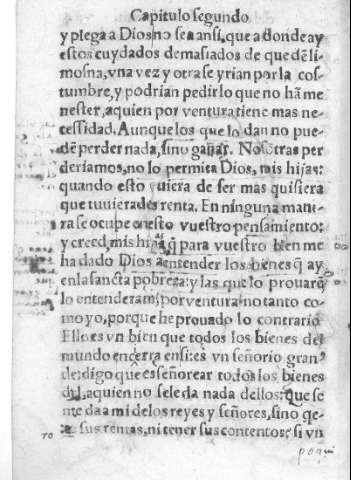 Capitulo segundo
y plega a Dios no sea ansi, que a donde ay
estos cuydados demasiados de que dē li-
mosna, vna vez y otra se yrian por la cos-
tumbre, y podrian pedir lo que no hā me
nester, a quien por ventura tiene mas ne-
cessidad. Aunque los que lo dan no pue-
dē perder nada, sino ganar. Nosotras per
deriamos, no lo permita Dios, mis hijas:
quando esto vuiera de ser mas quisiera
que tuuierades renta. En ninguna mane-
ra se ocupe en esto vuestro pensamiento:
y creed, mis hijas, q̄ para vuestro bien me
ha dado Dios a entender los bienes q̄ ay
en la sancta pobreza: y las que lo prouarē
lo entenderan, por ventura no tanto co-
mo yo, porque he prouado lo contrario
Ello es vn bien que todos los bienes del
mundo encierra en si: es vn señorio gran
de: digo que es señorear todos los bienes
del, a quien no se le da nada dellos: Que se
me da a mi de los reyes y señores, sino qe-
sus rentas, ni tener sus contentos: si vn